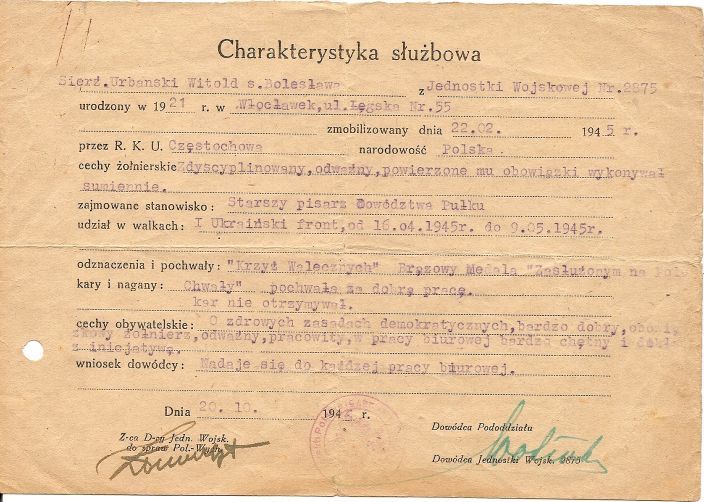 Charakterystyka służbowa
Sierż.Urbanski Witold s.Bolesława z Jednostki Wojskowej Nr.2875
urodzony w 1921 r. w Włocławek,ul.Łęgska Nr.55
zmobilizowany dnia 22.02. 1945 r.
przez R. K. U. Częstochowa narodowość Polska.
cechy żołnierskie Zdyscyplinowany,odważny,powierzone mu obowiązki wykonywał
sumiennie.
zajmowane stanowisko: Starszy pisarz Dowództwa Pułku
udział w walkach: I Ukraiński front,od 16.o4.1945r. do 9.05.1945r.
odznaczenia i pochwały: "Krzyż Walecznych" Brązowy Medala "Zasłużonym na Pol
kary i nagany: Chwały" pochwała za dobrą pracę.
kar nie otrzymywał.
cechy obywatelskie: O zdrowych zasadach demokratycznych,bardzo dobry,obowią
zkowy żołnierz,odważny,pracowity,w pracy biurowej bardzo chętny i
z inicjatywą.
wniosek dowódcy: Nadaje się do każdzej pracy biurowej.
Dnia 20.10. 194 r.
Z-ca D-cy Jedn. Wojsk.
do spraw Pol.-Wych.
Dowódca Pododdziału
Dowódca Jednostki Wojsk. 2875